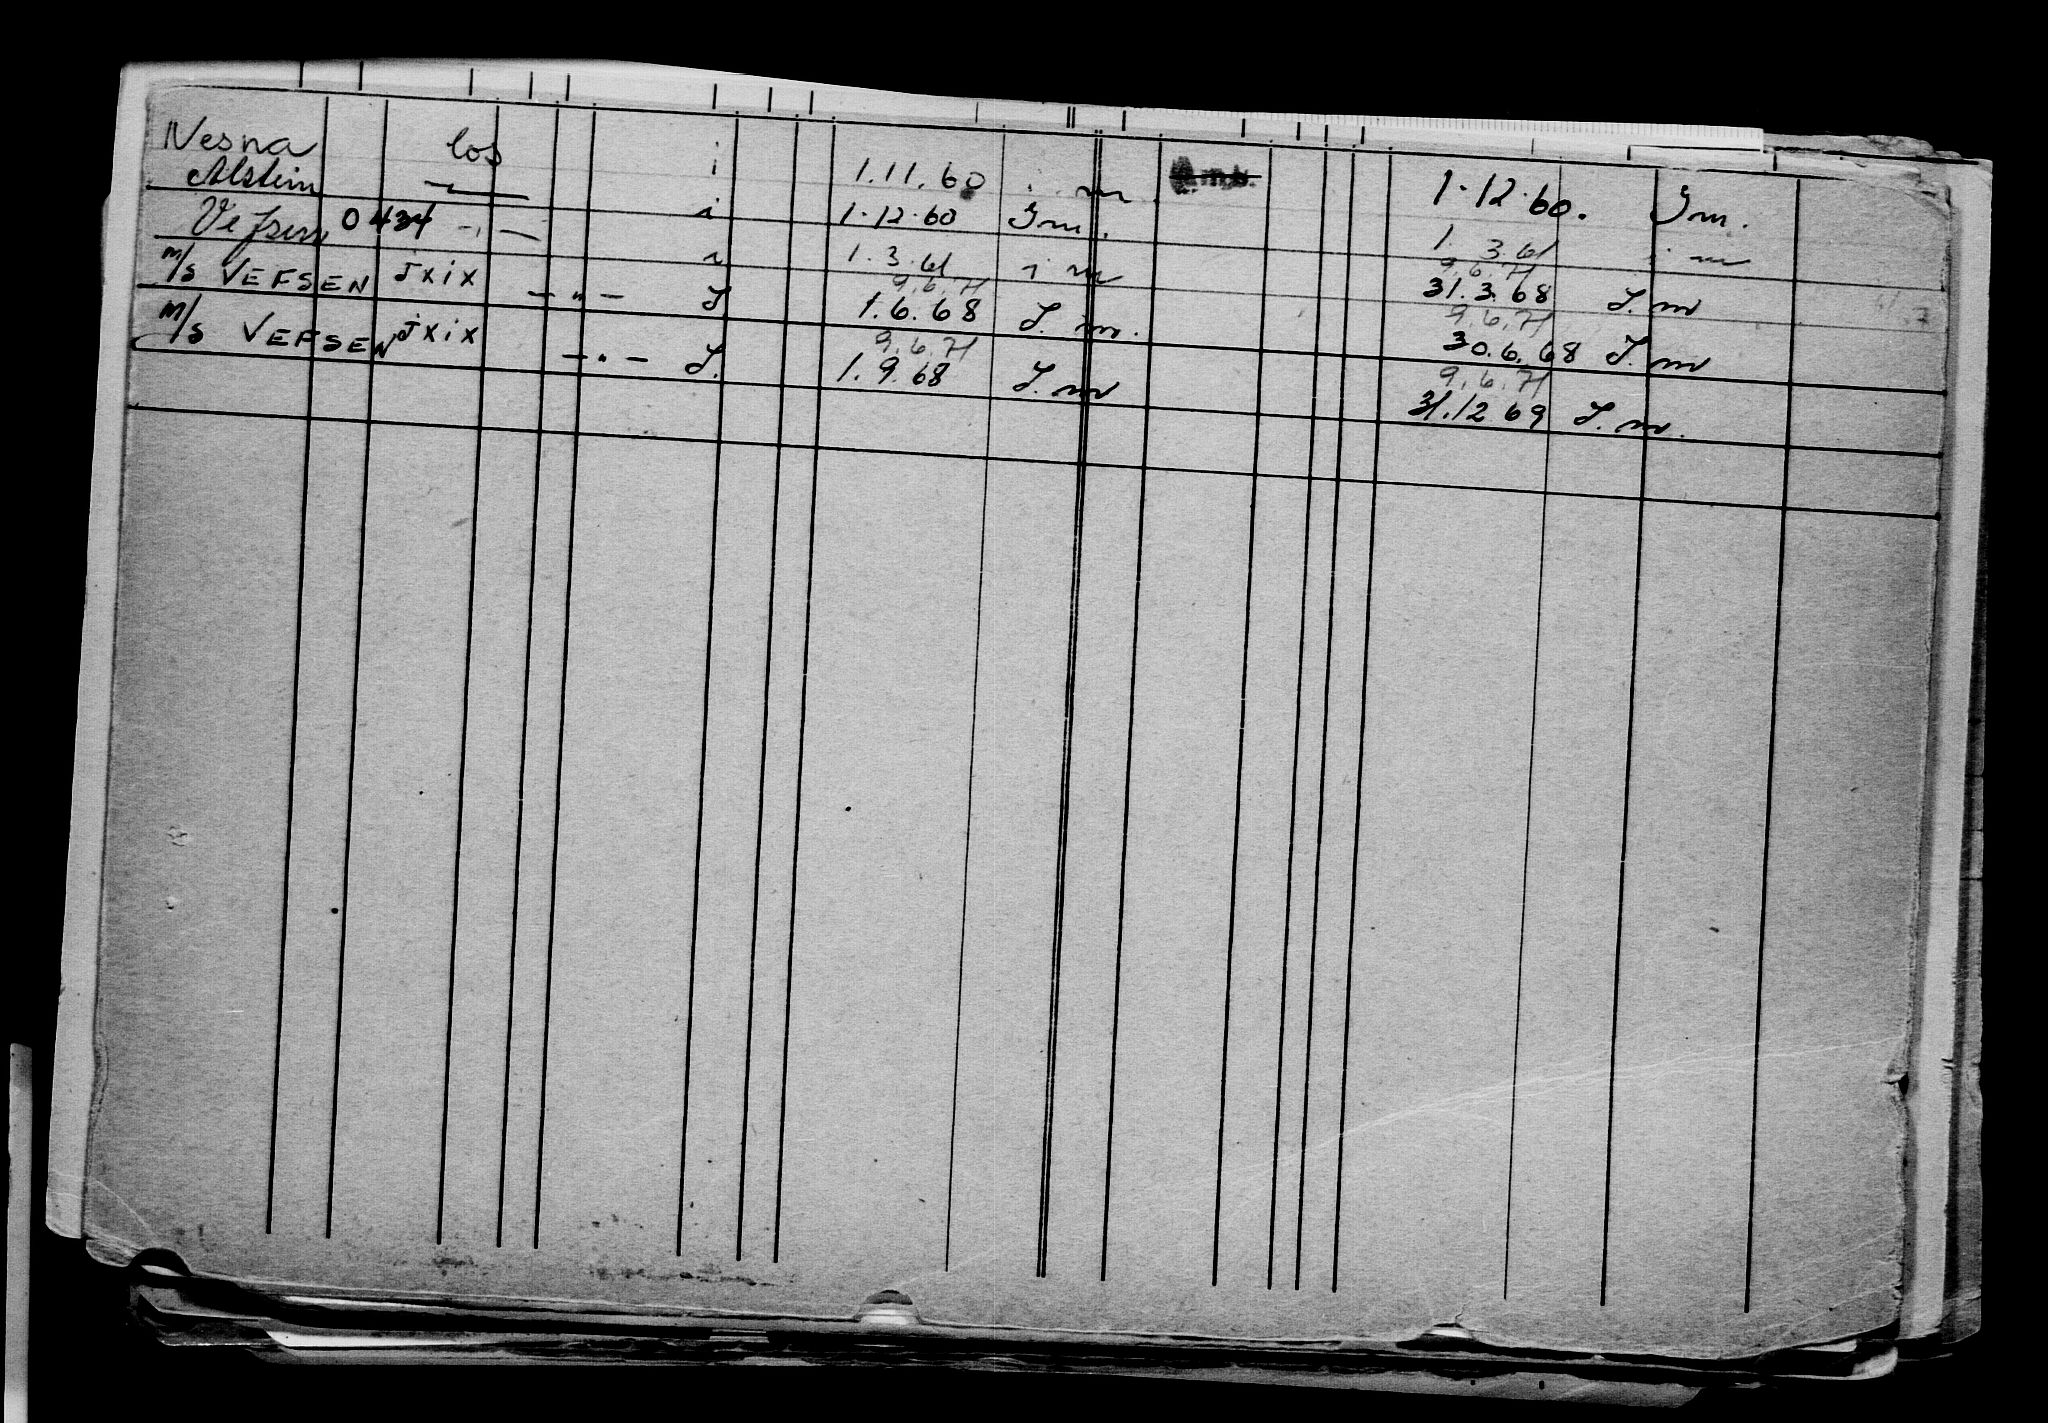 Nesna los i 1.11.60 i m 1.12.60. Im.
Alstein i 1.12.60 Im. 1. 3.61 i m
Vefsen 0434 - " - i 1.3.61 i m 9.6.71 31.3.68 I. m
M/S VEFSEN JXIX - " - I 9.6.71 1.6.68 I. m. 9.6.71 30.6.68 I. m
M/S VEFSEN JXIX - " - I. 9.6.71 1.9.68 I. m 9.6.71 31.12 69 I. m.